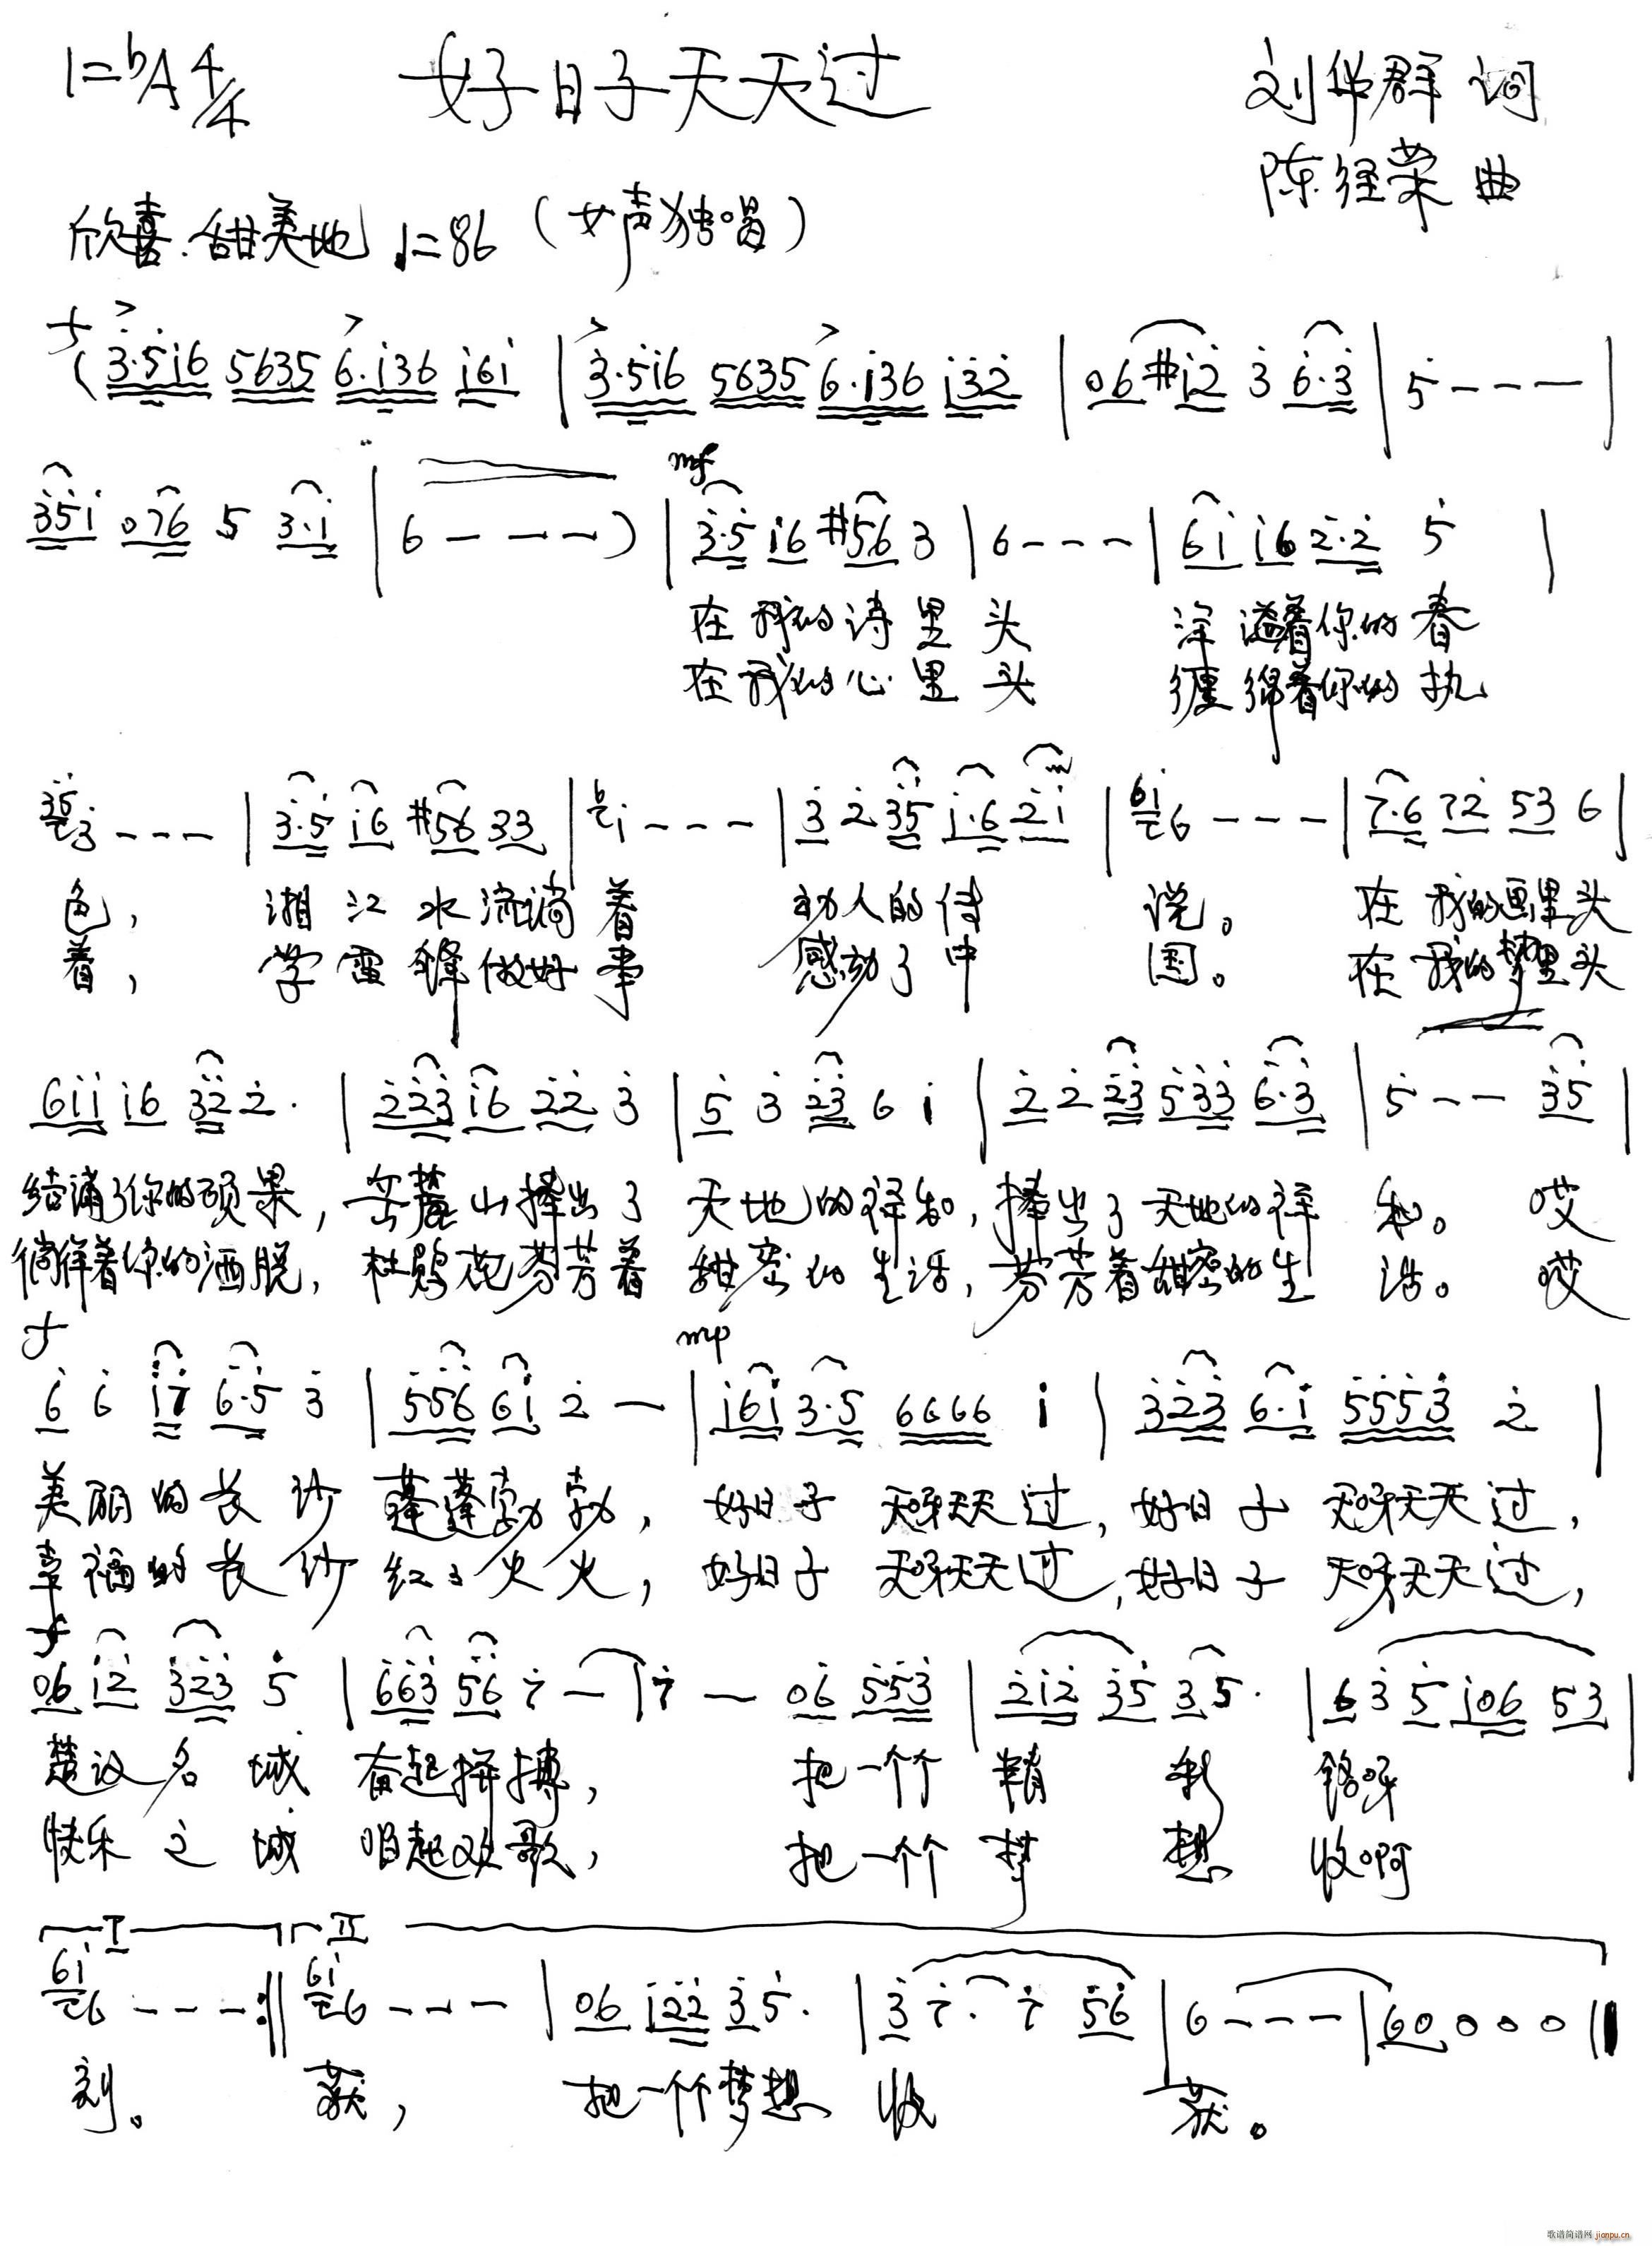 1=bA 4/4 好日子天天过 刘华群 词
陈经荣 曲
欣喜.甜美地 ♩=86 (女声独唱)
f
(3·5i6 5635 6·i36 i6i | 3·5i6 5635 6·i36 i32 | 06 #i2 3 6·3 | 5 - - - |
mf
35i 076 5 3·i | 6 - - - ) | 3·5 i6 #56 3 | 6 - - - | 6i i6 2·2 5 |
在我的诗里头 洋溢着你的春
在我的心里头 缠绵着你的执
35 3 - - - | 3·5 i6 #56 33 | 6 i - - - | 3 2 35 i·6 2i | 6i 6 - - - | 7·6 72 53 6 |
色， 湘江水流淌着 动人的传说。 在我的画里头
着， 学雷锋做好事 感动了中国。 在我的梦里头
6ii i6 32 2· | 223 i6 22 3 | 5 3 23 6 i | 2 2 23 533 6·3 | 5 - - 35 |
结满了你的硕果, 岳麓山捧出了 天地的祥和, 捧出了天地的祥和。 哎
徜徉着你的洒脱, 杜鹃花芬芳着 甜蜜的生活, 芬芳着甜蜜的生活。 哎
f mp
6 6 i7 6·5 3 | 556 6i 2 - | i6i 3·5 6666 i | 323 6·i 5553 2 |
美丽的长沙 蓬蓬勃勃, 好日子 天呀天天过, 好日子 天呀天天过,
幸福的长沙 红红火火, 好日子 天呀天天过, 好日子 天呀天天过,
f
06 i2 323 5 | 663 56 7 - | 7 - 06 553 | 2i2 35 35· | 6 3 5 i06 53 |
楚汉名城 奋起拼搏, 把一个个 精彩 铭呀
快乐之城 唱起欢歌, 把一个个 梦想 收啊
I II
6i 6 - - - :|| 6i 6 - - - | 06 i22 35· | 3 7· 7 56 | 6 - - - | 60 0 0 0 ||
刻。 获, 把一个个梦想 收获。
歌谱简谱网 jianpu.cn